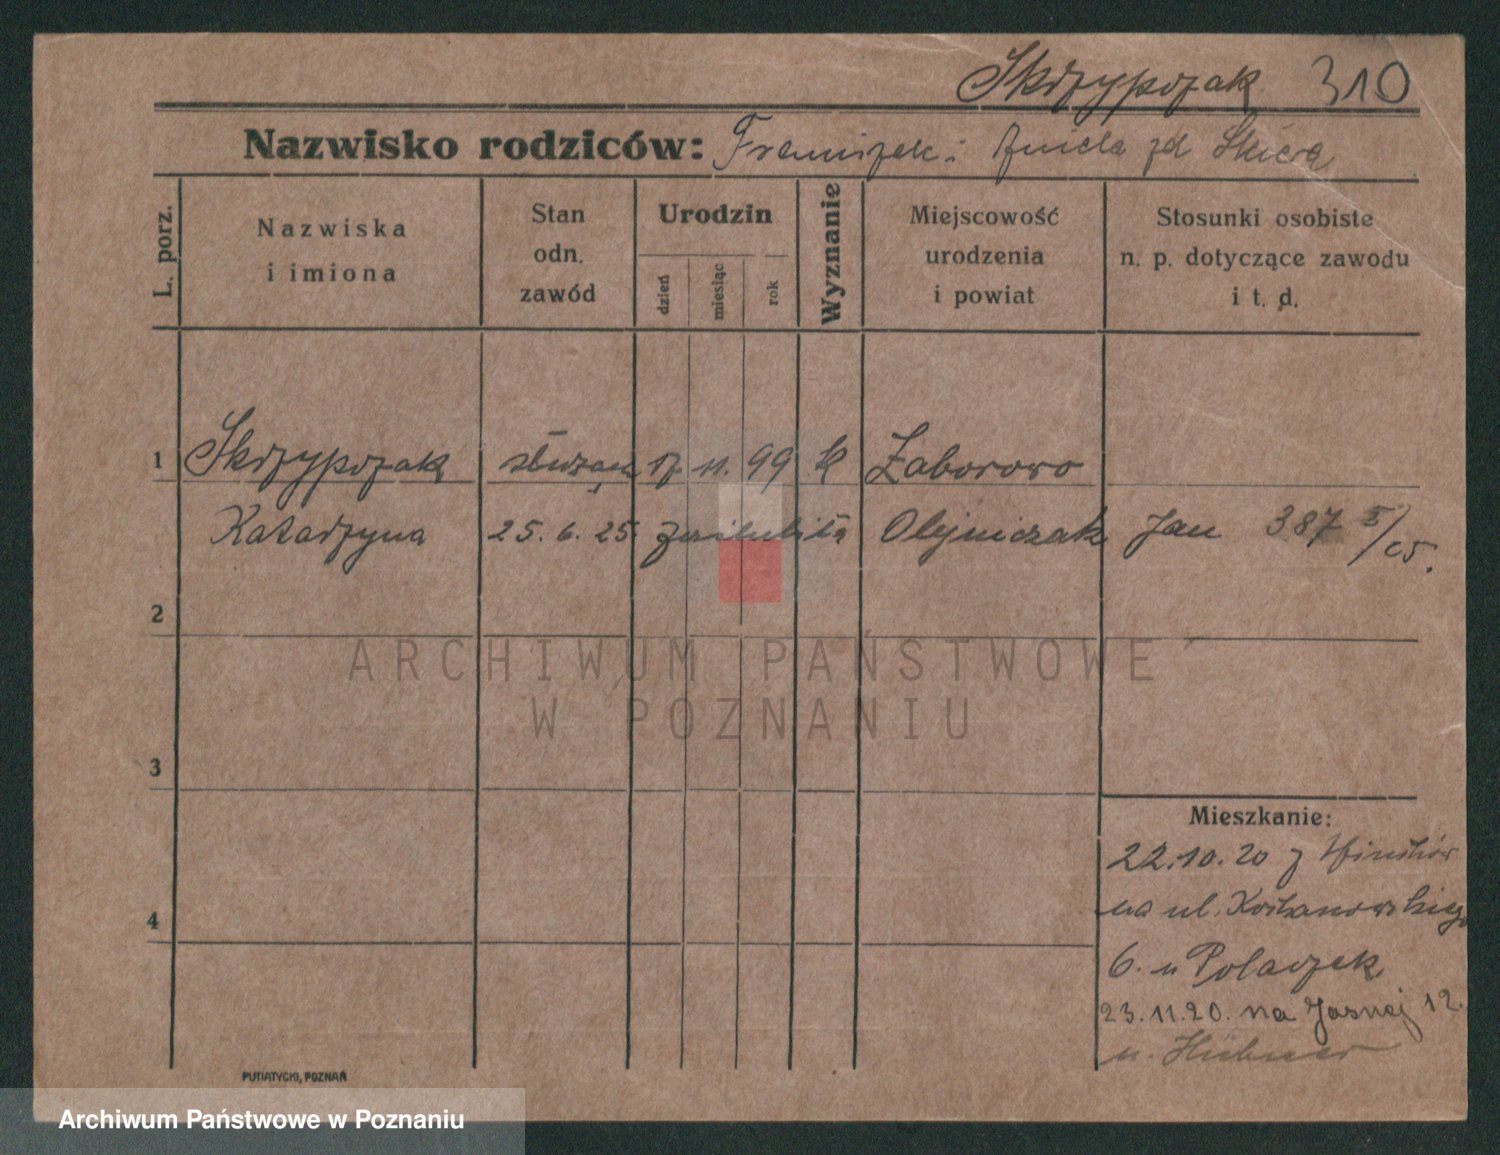 Skrzypczak 310
Nazwisko rodziców: Franciszek i zd Skiera
L. porz.
Nazwiska i imiona
Stan odn. zawód
Urodzin
dzień
miesiąc
rok
Wyznanie
Miejscowość urodzenia i powiat
Stosunki osobiste n. p. dotyczące zawodu i t. d.
1 Skrzypczak służąca 17 11. 99 k Zaborowo
Katarzyna 25. 6. 25. zaślubiła Olejniczak Jan 387 I/25.
2
ARCHIWUM PAŃSTWOWE
W POZNANIU
3
Mieszkanie:
22.10.20 z
na ul. Kochanowskiego
4
6. u Polaczek
23.11.20. na Jasnej 12.
u. Hübner
PUTIATYCKI, POZNAŃ
Archiwum Państwowe w Poznaniu